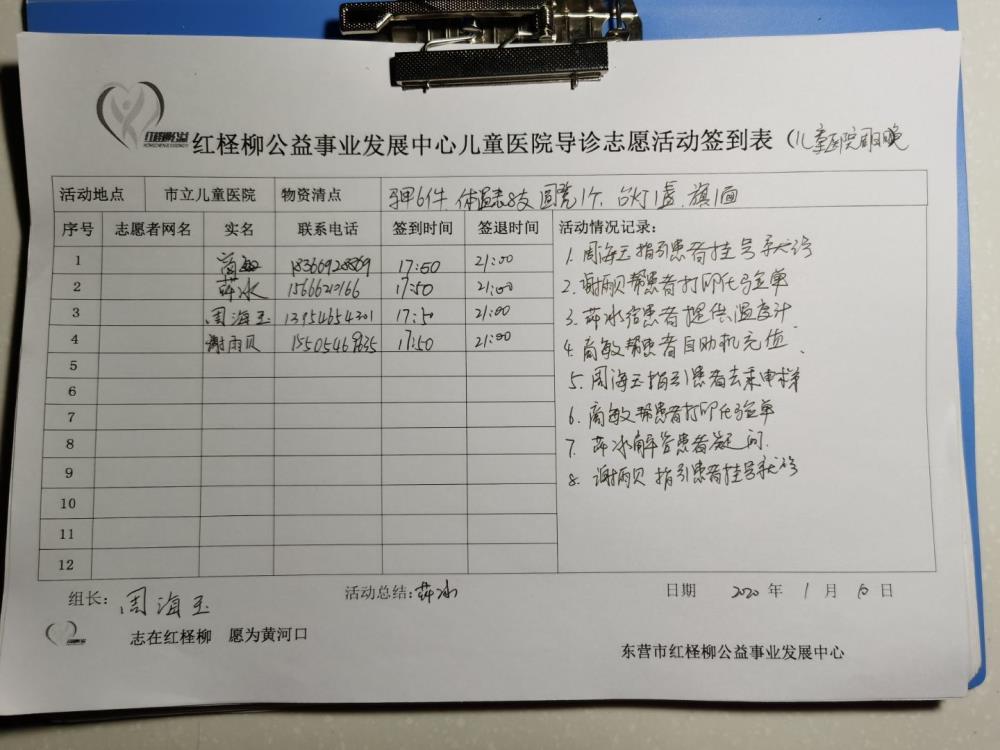 红柽柳公益
红柽柳公益事业发展中心儿童医院导诊志愿活动签到表（儿童医院周日晚
活动地点 市立儿童医院 物资清点 马甲6件 体温表8支 圆凳1个 台灯1盏 旗1面
序号 志愿者网名 实名 联系电话 签到时间 签退时间 活动情况记录：
1 18366928869 17:50 21:00
2 萍冰 17:50 21:00
3 周海玉 13954654301 17:50 21:00
4 谢雨贝 17:50 21:00
5
6
7
8
9
10
11
12
1. 周海玉指引患者挂号就诊
2. 谢雨贝帮患者打印化验单
3. 萍冰给患者提供温度计
4. 高敏帮患者自助机充值
5. 周海玉指引患者去采甲样
6. 高敏帮患者打印化验单
7. 萍冰解答患者疑问
8. 谢雨贝指引患者挂号就诊
组长：周海玉 活动总结：萍冰 日期 2020 年 1 月 日
志在红柽柳 愿为黄河口
东营市红柽柳公益事业发展中心